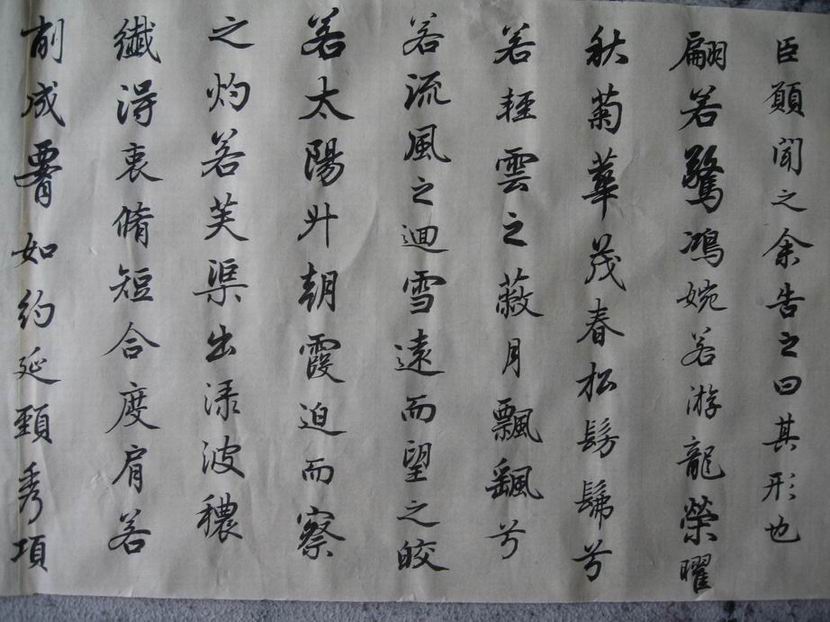 臣願聞之余告之曰其形也
翩若驚鴻婉若游龍榮曜
秋菊華茂春松髣髴兮
若輕雲之蔽月飄颻兮
若流風之迴雪遠而望之皎
若太陽升朝霞迫而察
之灼若芙渠出淥波穠
纖得衷脩短合度肩若
削成腰如約延頸秀項